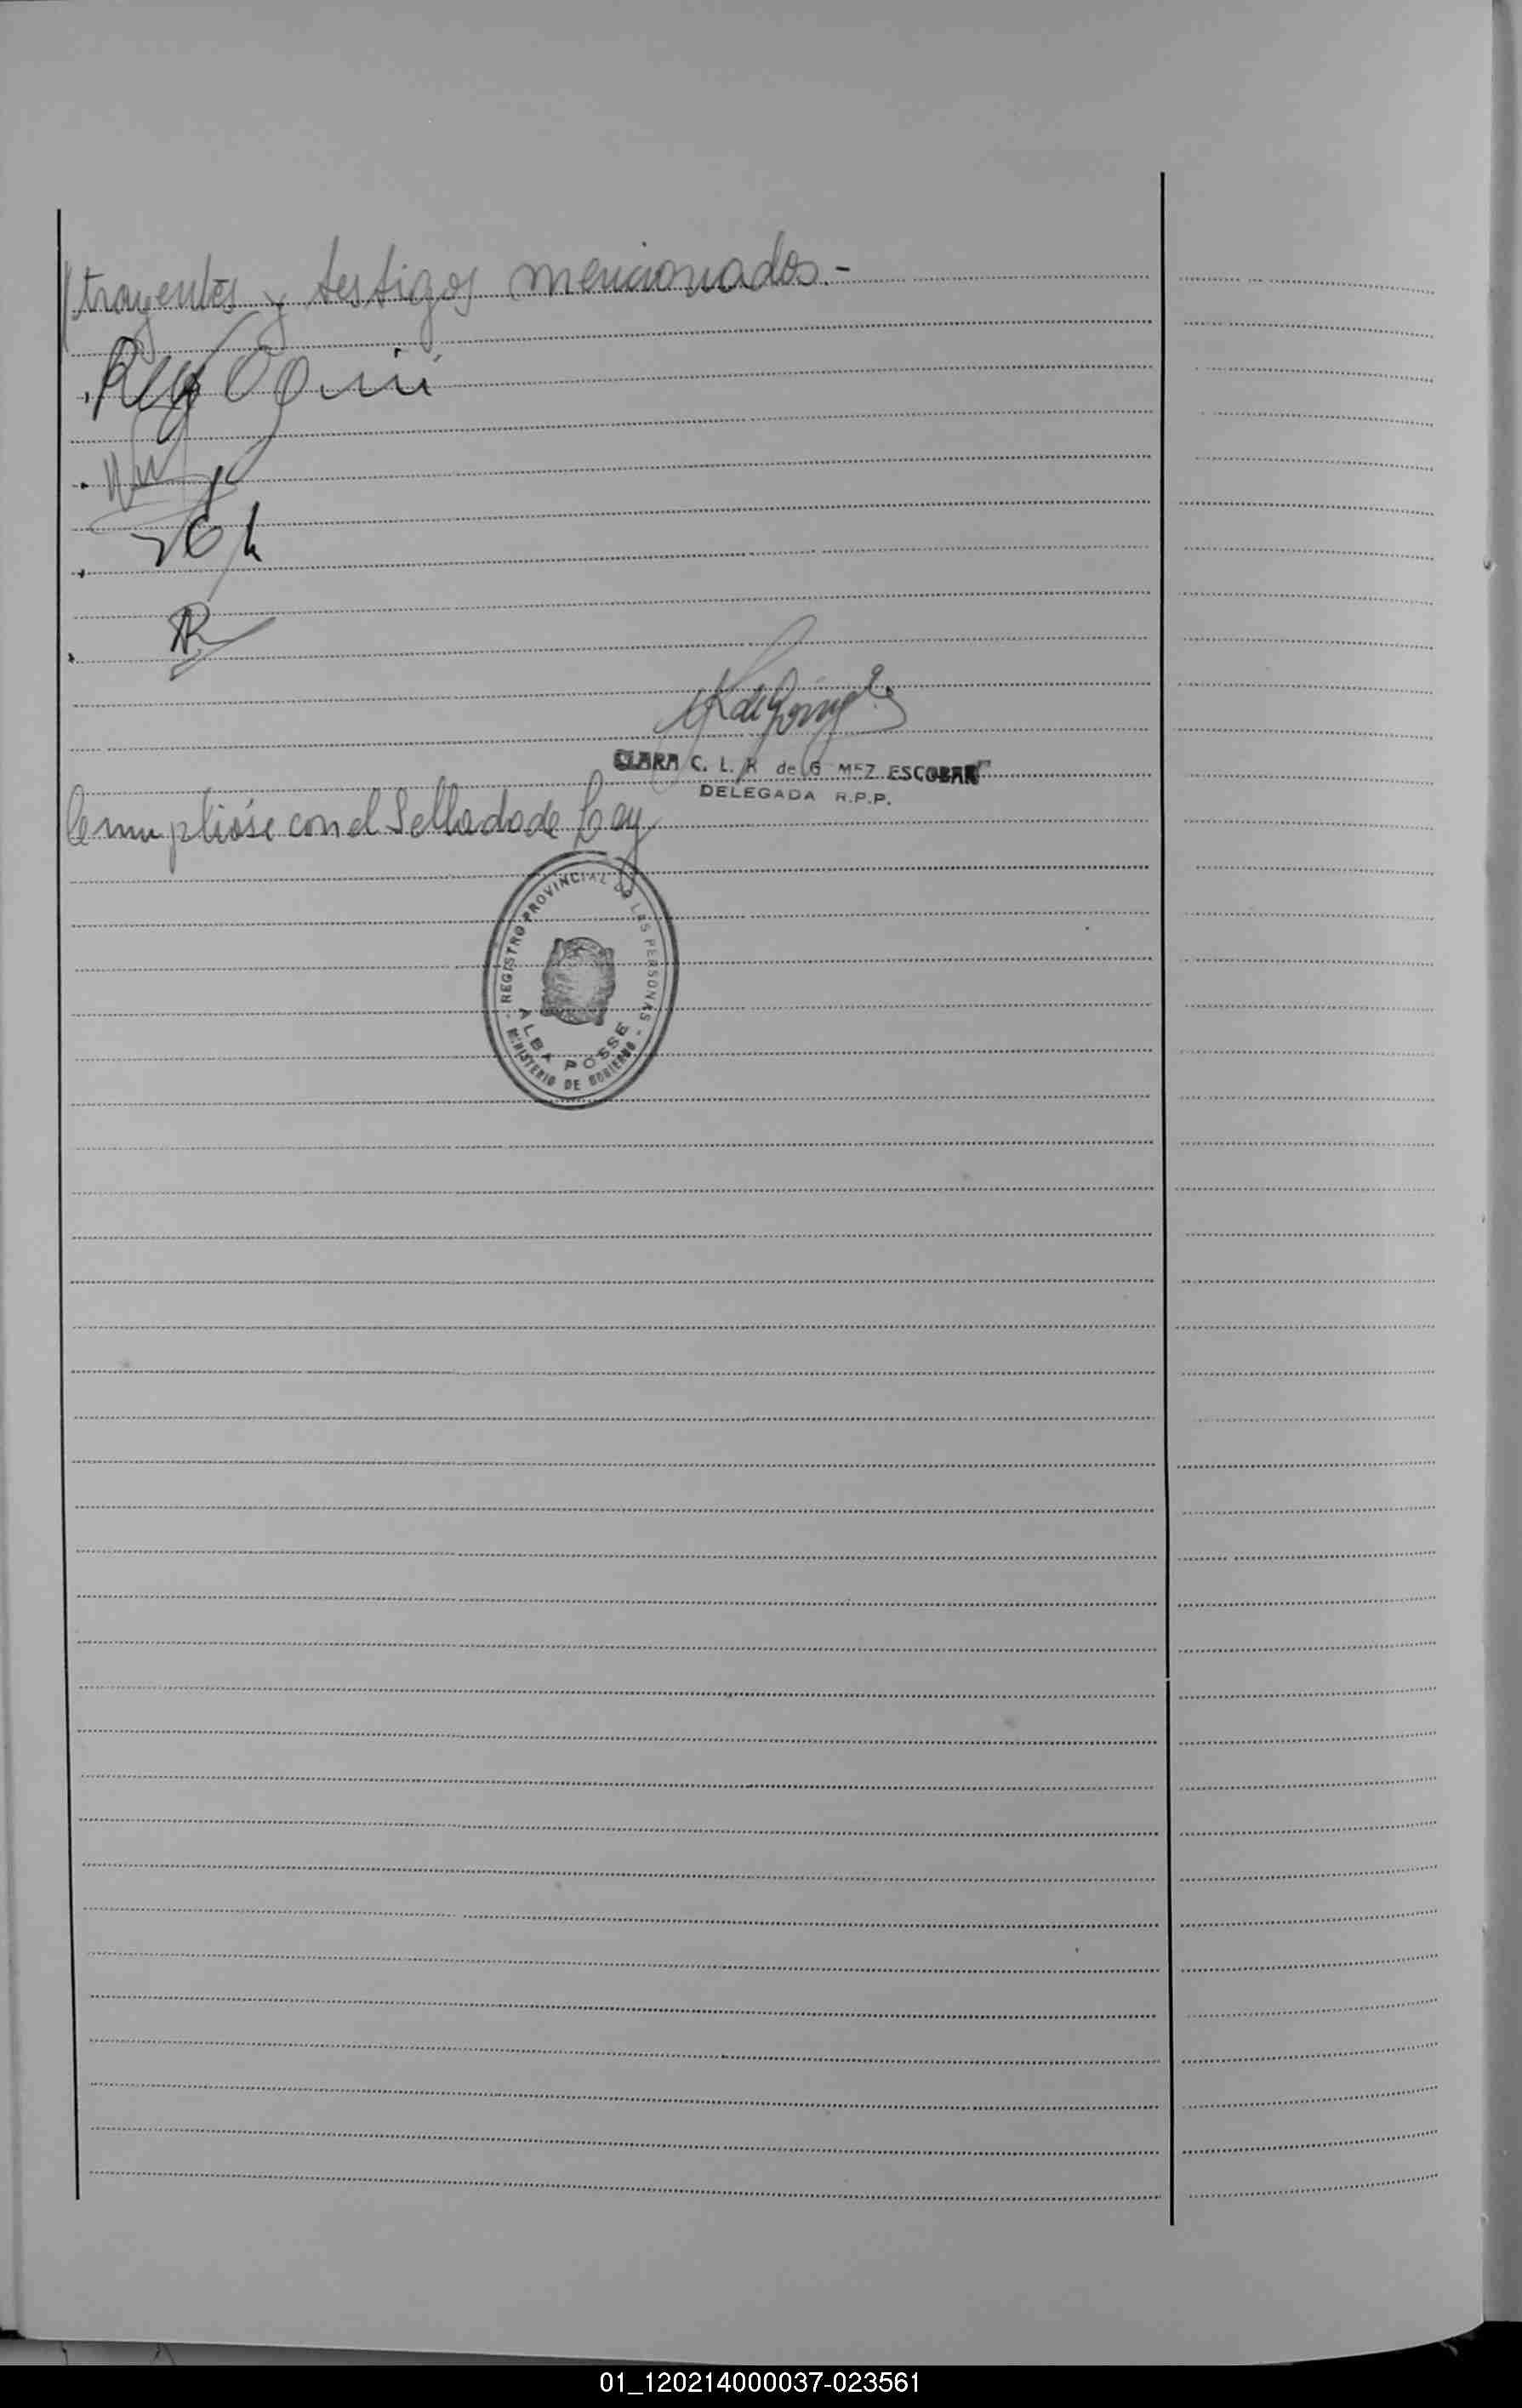 //trayentes y testigos mencionados.-
CLARA C. L. R de G MEZ ESCOBAR
DELEGADA R.P.P.
Cumplióse con el Sellado de Ley
REGISTRO PROVINCIAL DE LAS PERSONAS
ALBA POSSE
MINISTERIO DE GOBIERNO
01_120214000037-023561